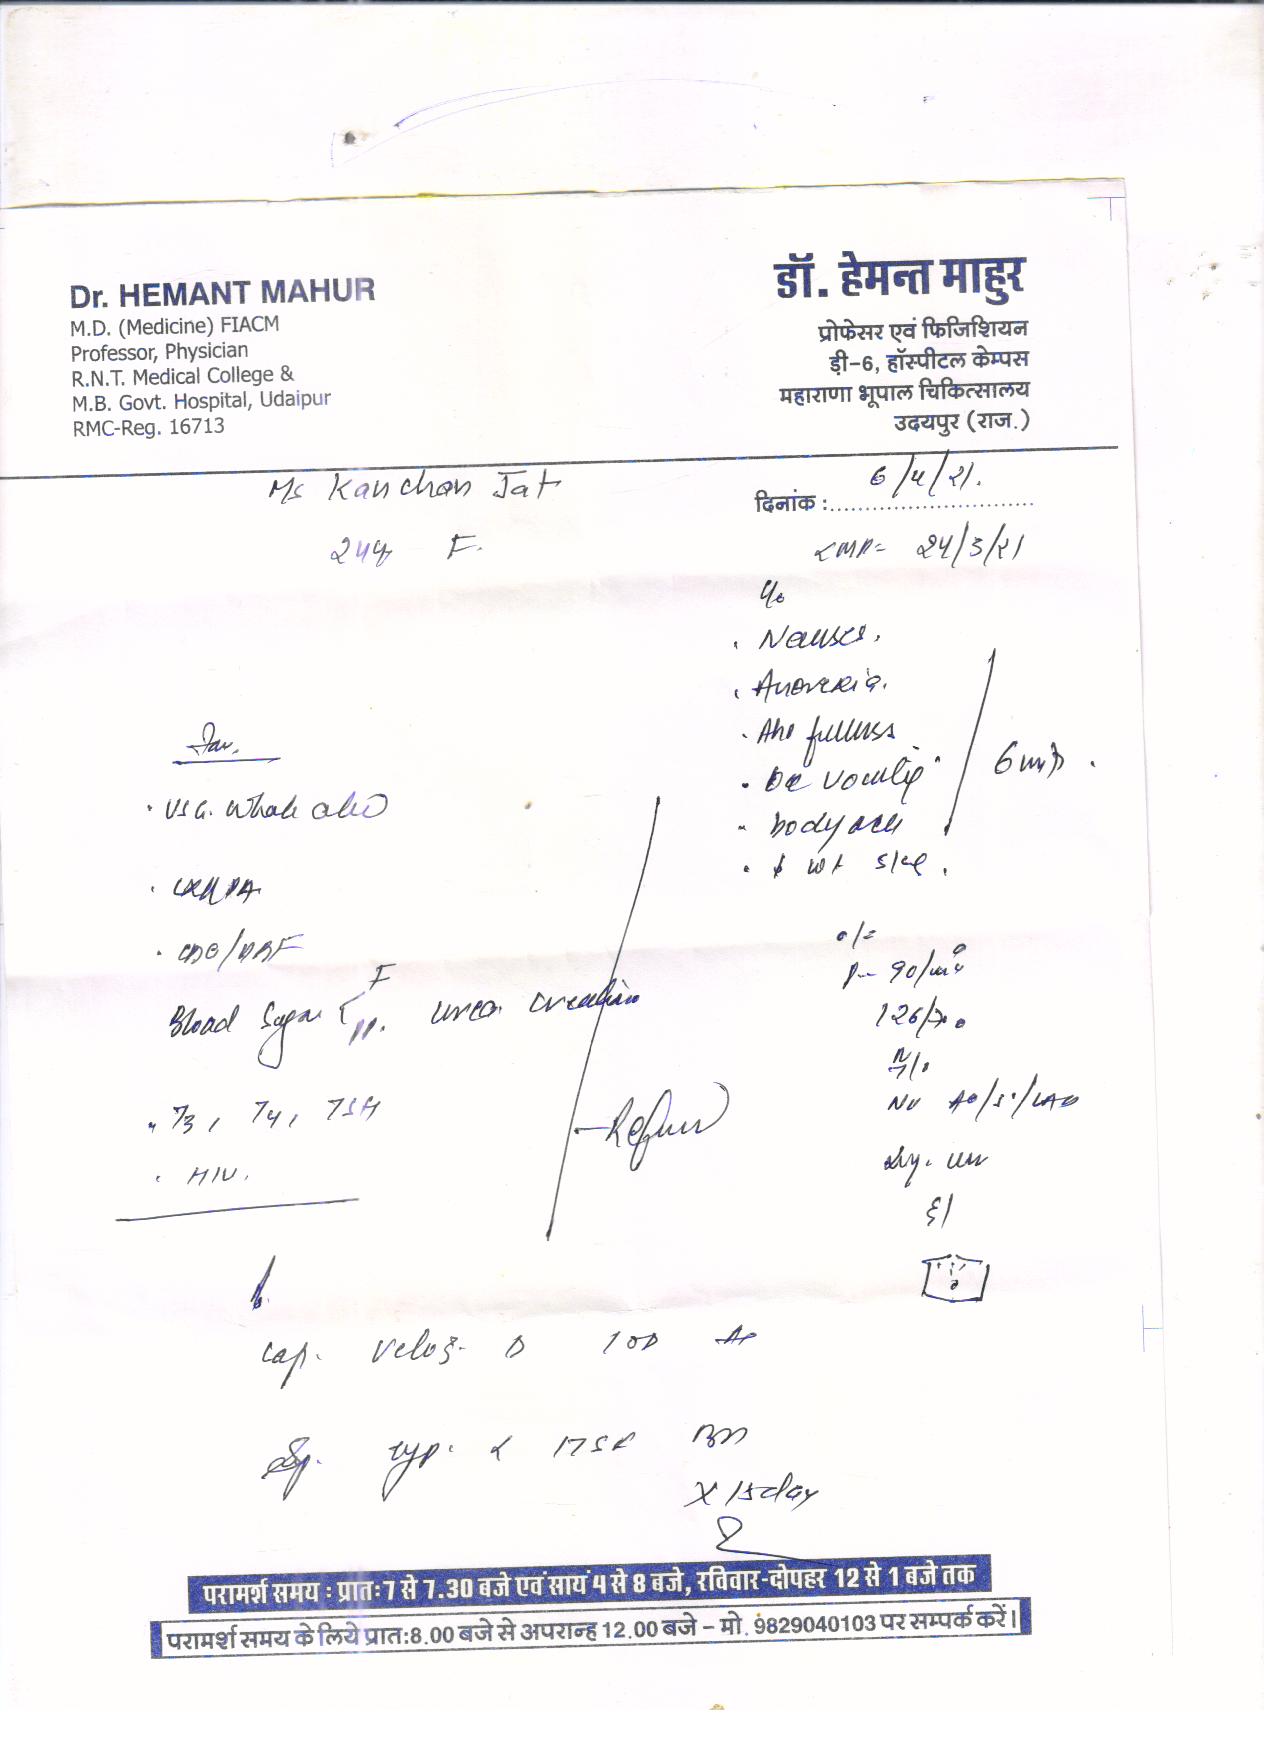 Dr. HEMANT MAHUR
M.D. (Medicine) FIACM
Professor, Physician
R.N.T. Medical College &
M.B. Govt. Hospital, Udaipur
RMC-Reg. 16713
डॉ. हेमन्त माहुर
प्रोफेसर एवं फिजिशियन
डी-6, हॉस्पीटल केम्पस
महाराणा भूपाल चिकित्सालय
उदयपुर (राज.)
Ms Kanchan Jat
24y F.
दिनांक : 6/4/21.
LMP= 24/3/21
c/o
. Nausea.
. Anorexia.
. Abd fullness
. vomiting
. bodyache
. wt
Inv.
. USG. Whole abd
. CXR PA
. CBC/PBF
Blood Sugar F PP. urea creatinine
. T3, T4, TSH
. HIV.
Refuse
o/e
P- 90/m
126/70
Cap. Veloz- D 1 OD
Sy. 1 TSF
X 15day
परामर्श समय : प्रातः 7 से 7.30 बजे एवं सायं 4 से 8 बजे, रविवार-दोपहर 12 से 1 बजे तक
परामर्श समय के लिये प्रात:8.00 बजे से अपरान्ह 12.00 बजे – मो. 9829040103 पर सम्पर्क करें।